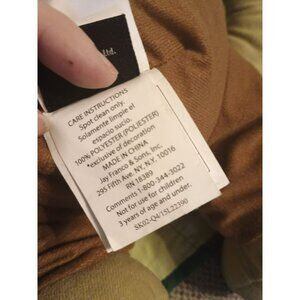 Ltd.
CARE INSTRUCTIONS
Spot clean only.
Solamente limpie el
espacio sucio.
100% POLYESTER (POLIESTER)
*exclusive of decoration
MADE IN CHINA
Jay Franco & Sons, Inc.
295 Fifth Ave. NY, N.Y. 10016
RN 18389
Comments 1-800-344-3022
Not for use for children
3 years of age and under.
SK02-Q4/15L22390